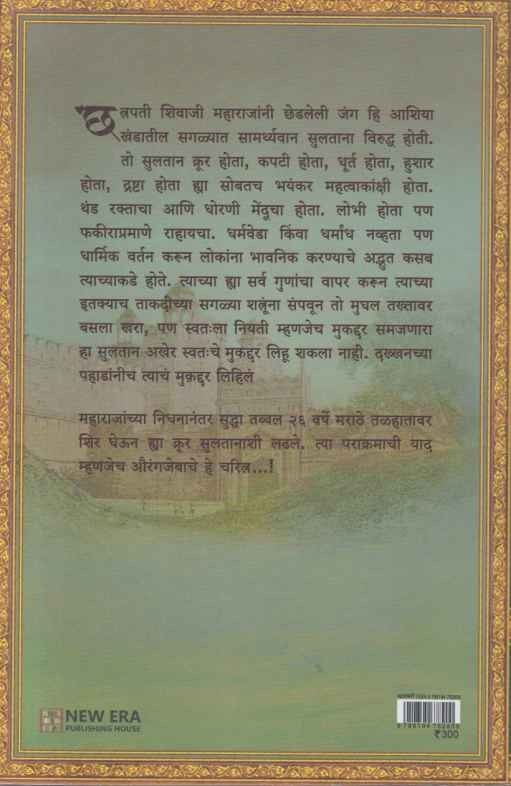 छत्रपती शिवाजी महाराजांनी छेडलेली जंग हि आशिया
खंडातील सगळ्यात सामर्थ्यवान सुलताना विरुद्ध होती.
तो सुलतान क्रूर होता, कपटी होता, धूर्त होता, हुशार
होता, द्रष्टा होता ह्या सोबतच भयंकर महत्वाकांक्षी होता.
थंड रक्ताचा आणि धोरणी मेंदूचा होता. लोभी होता पण
फकीराप्रमाणे राहायचा. धर्मवेडा किंवा धर्मांध नव्हता पण
धार्मिक वर्तन करून लोकांना भावनिक करण्याचे अद्भुत कसब
त्याच्याकडे होते. त्याच्या ह्या सर्व गुणांचा वापर करून त्याच्या
इतक्याच ताकदीच्या सगळ्या शत्रूंना संपवून तो मुघल तख्तावर
बसला खरा, पण स्वतःला नियती म्हणजेच मुकद्दर समजणारा
हा सुलतान अखेर स्वतःचे मुकद्दर लिहू शकला नाही. दख्खनच्या
पहाडांनीच त्याचं मुक़द्दर लिहिलं
महाराजांच्या निधनानंतर सुद्धा तब्बल २६ वर्षे मराठे तळहातावर
शिर घेऊन ह्या क्रूर सुलतानाशी लढले. त्या पराक्रमाची याद
म्हणजेच औरंगजेबाचे हे चरित्र...!
NEW ERA
PUBLISHING HOUSE
₹300